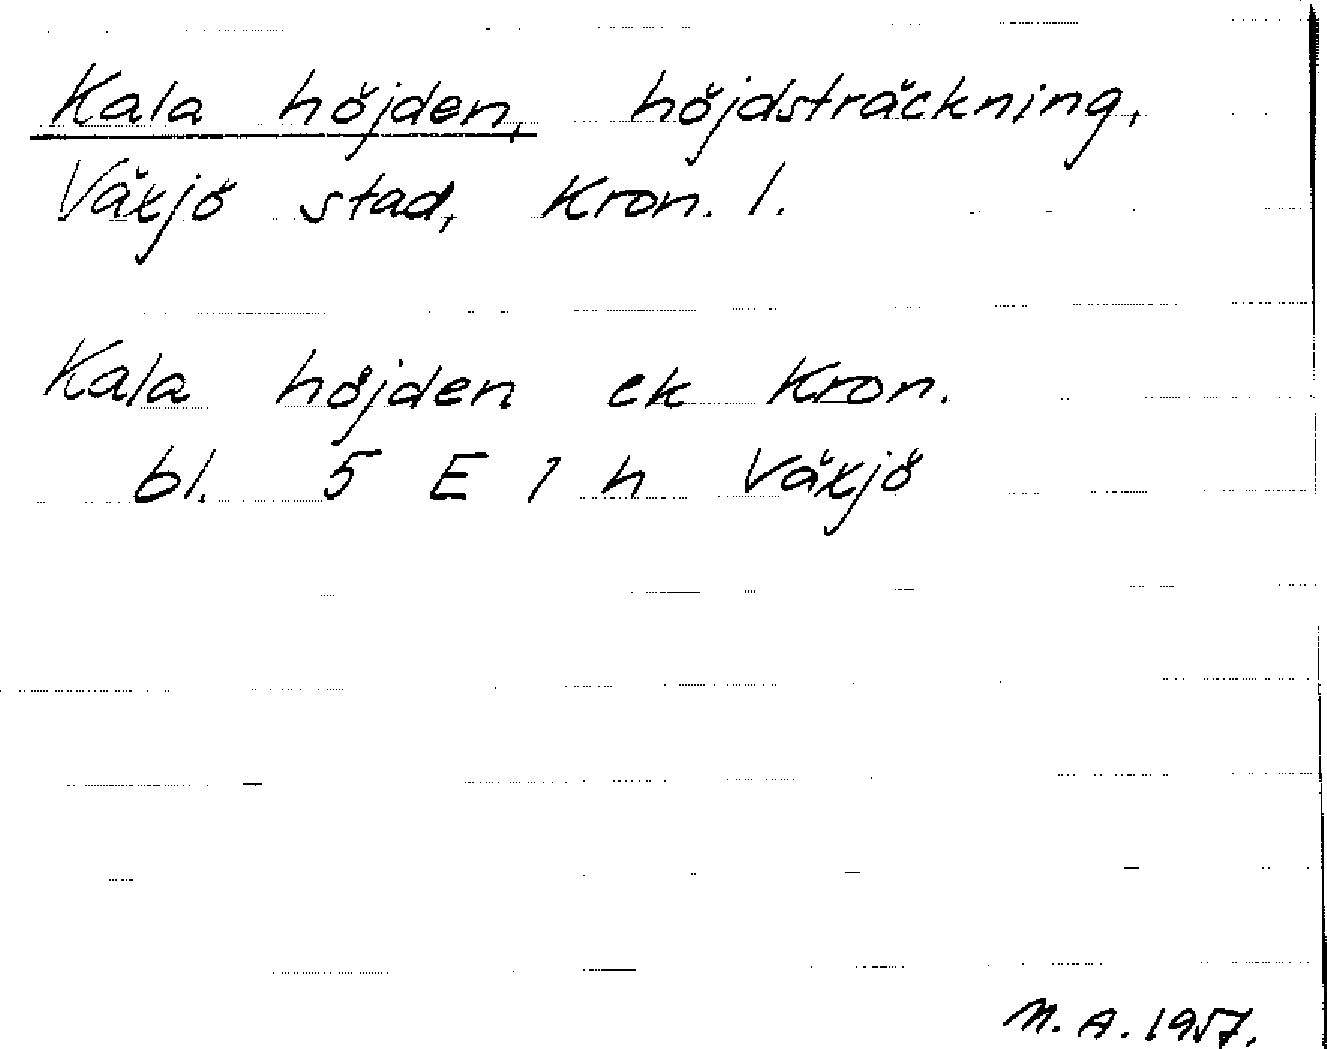 Kala höjden, höjdsträckning,
Växjö stad, Kron. l.
Kala höjden ek Kron.
bl. 5 E 1 h Växjö
M. A. 1957.